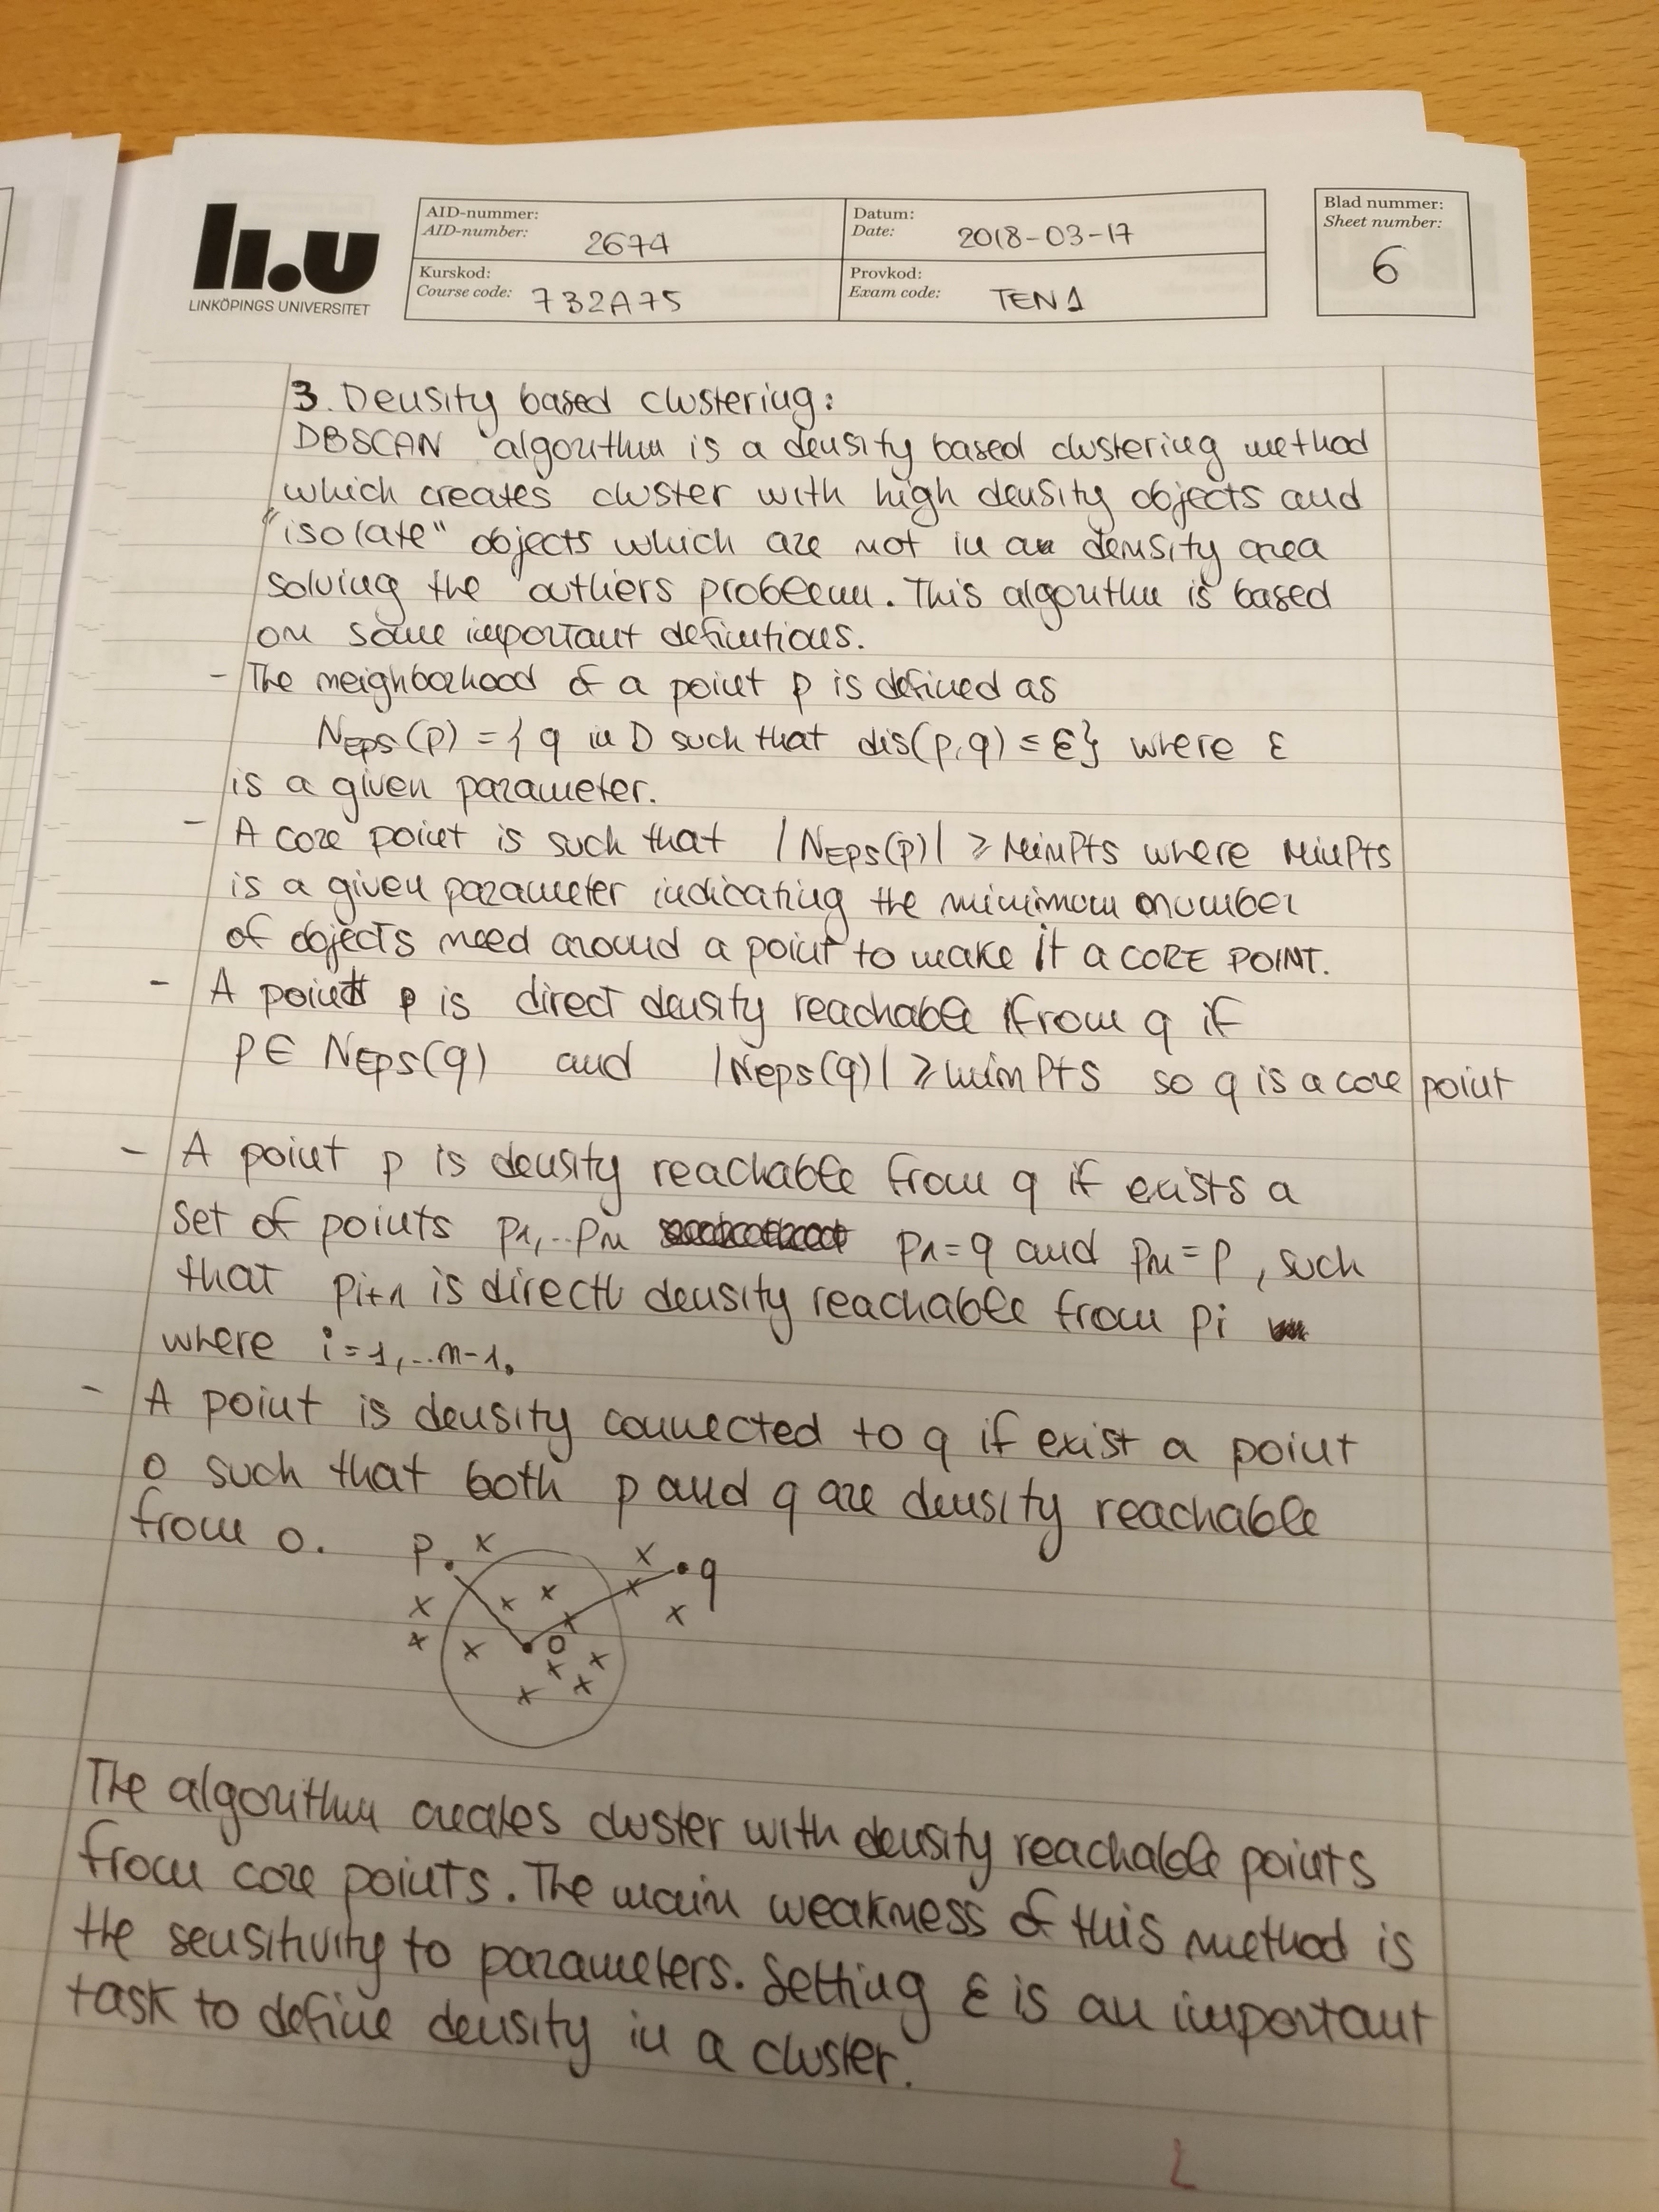 LINKÖPINGS UNIVERSITET
AID-nummer:
AID-number: 2674
Datum:
Date: 2018-03-17
Kurskod:
Course code: 732A75
Provkod:
Exam code: TEN1
Blad nummer:
Sheet number:
6
3. Density based clustering:
DBSCAN algorithm is a density based clustering method
which creates cluster with high density objects and
"isolate" objects which are not in a density area
solving the outliers problem. This algorithm is based
on some important definitions.
- The neighborhood of a point p is defined as
NEps(p) = { q in D such that dis(p,q) ≤ ε} where ε
is a given parameter.
- A core point is such that |NEPS(p)| ≥ MinPts where MinPts
is a given parameter indicating the minimum number
of objects need around a point to make it a CORE POINT.
- A point p is direct density reachable from q if
p∈ NEps(q) and |NEps(q)| ≥ minPts so q is a core point
- A point p is density reachable from q if exists a
set of points p1,..pn p1=q and pn=p, such
that pi+1 is directl density reachable from pi
where i=1,..n-1.
- A point is density connected to q if exist a point
o such that both p and q are density reachable
from o.
p
q
o
The algorithm creates cluster with density reachable points
from core points. The main weakness of this method is
the sensitivity to parameters. Setting ε is an important
task to define density in a cluster.